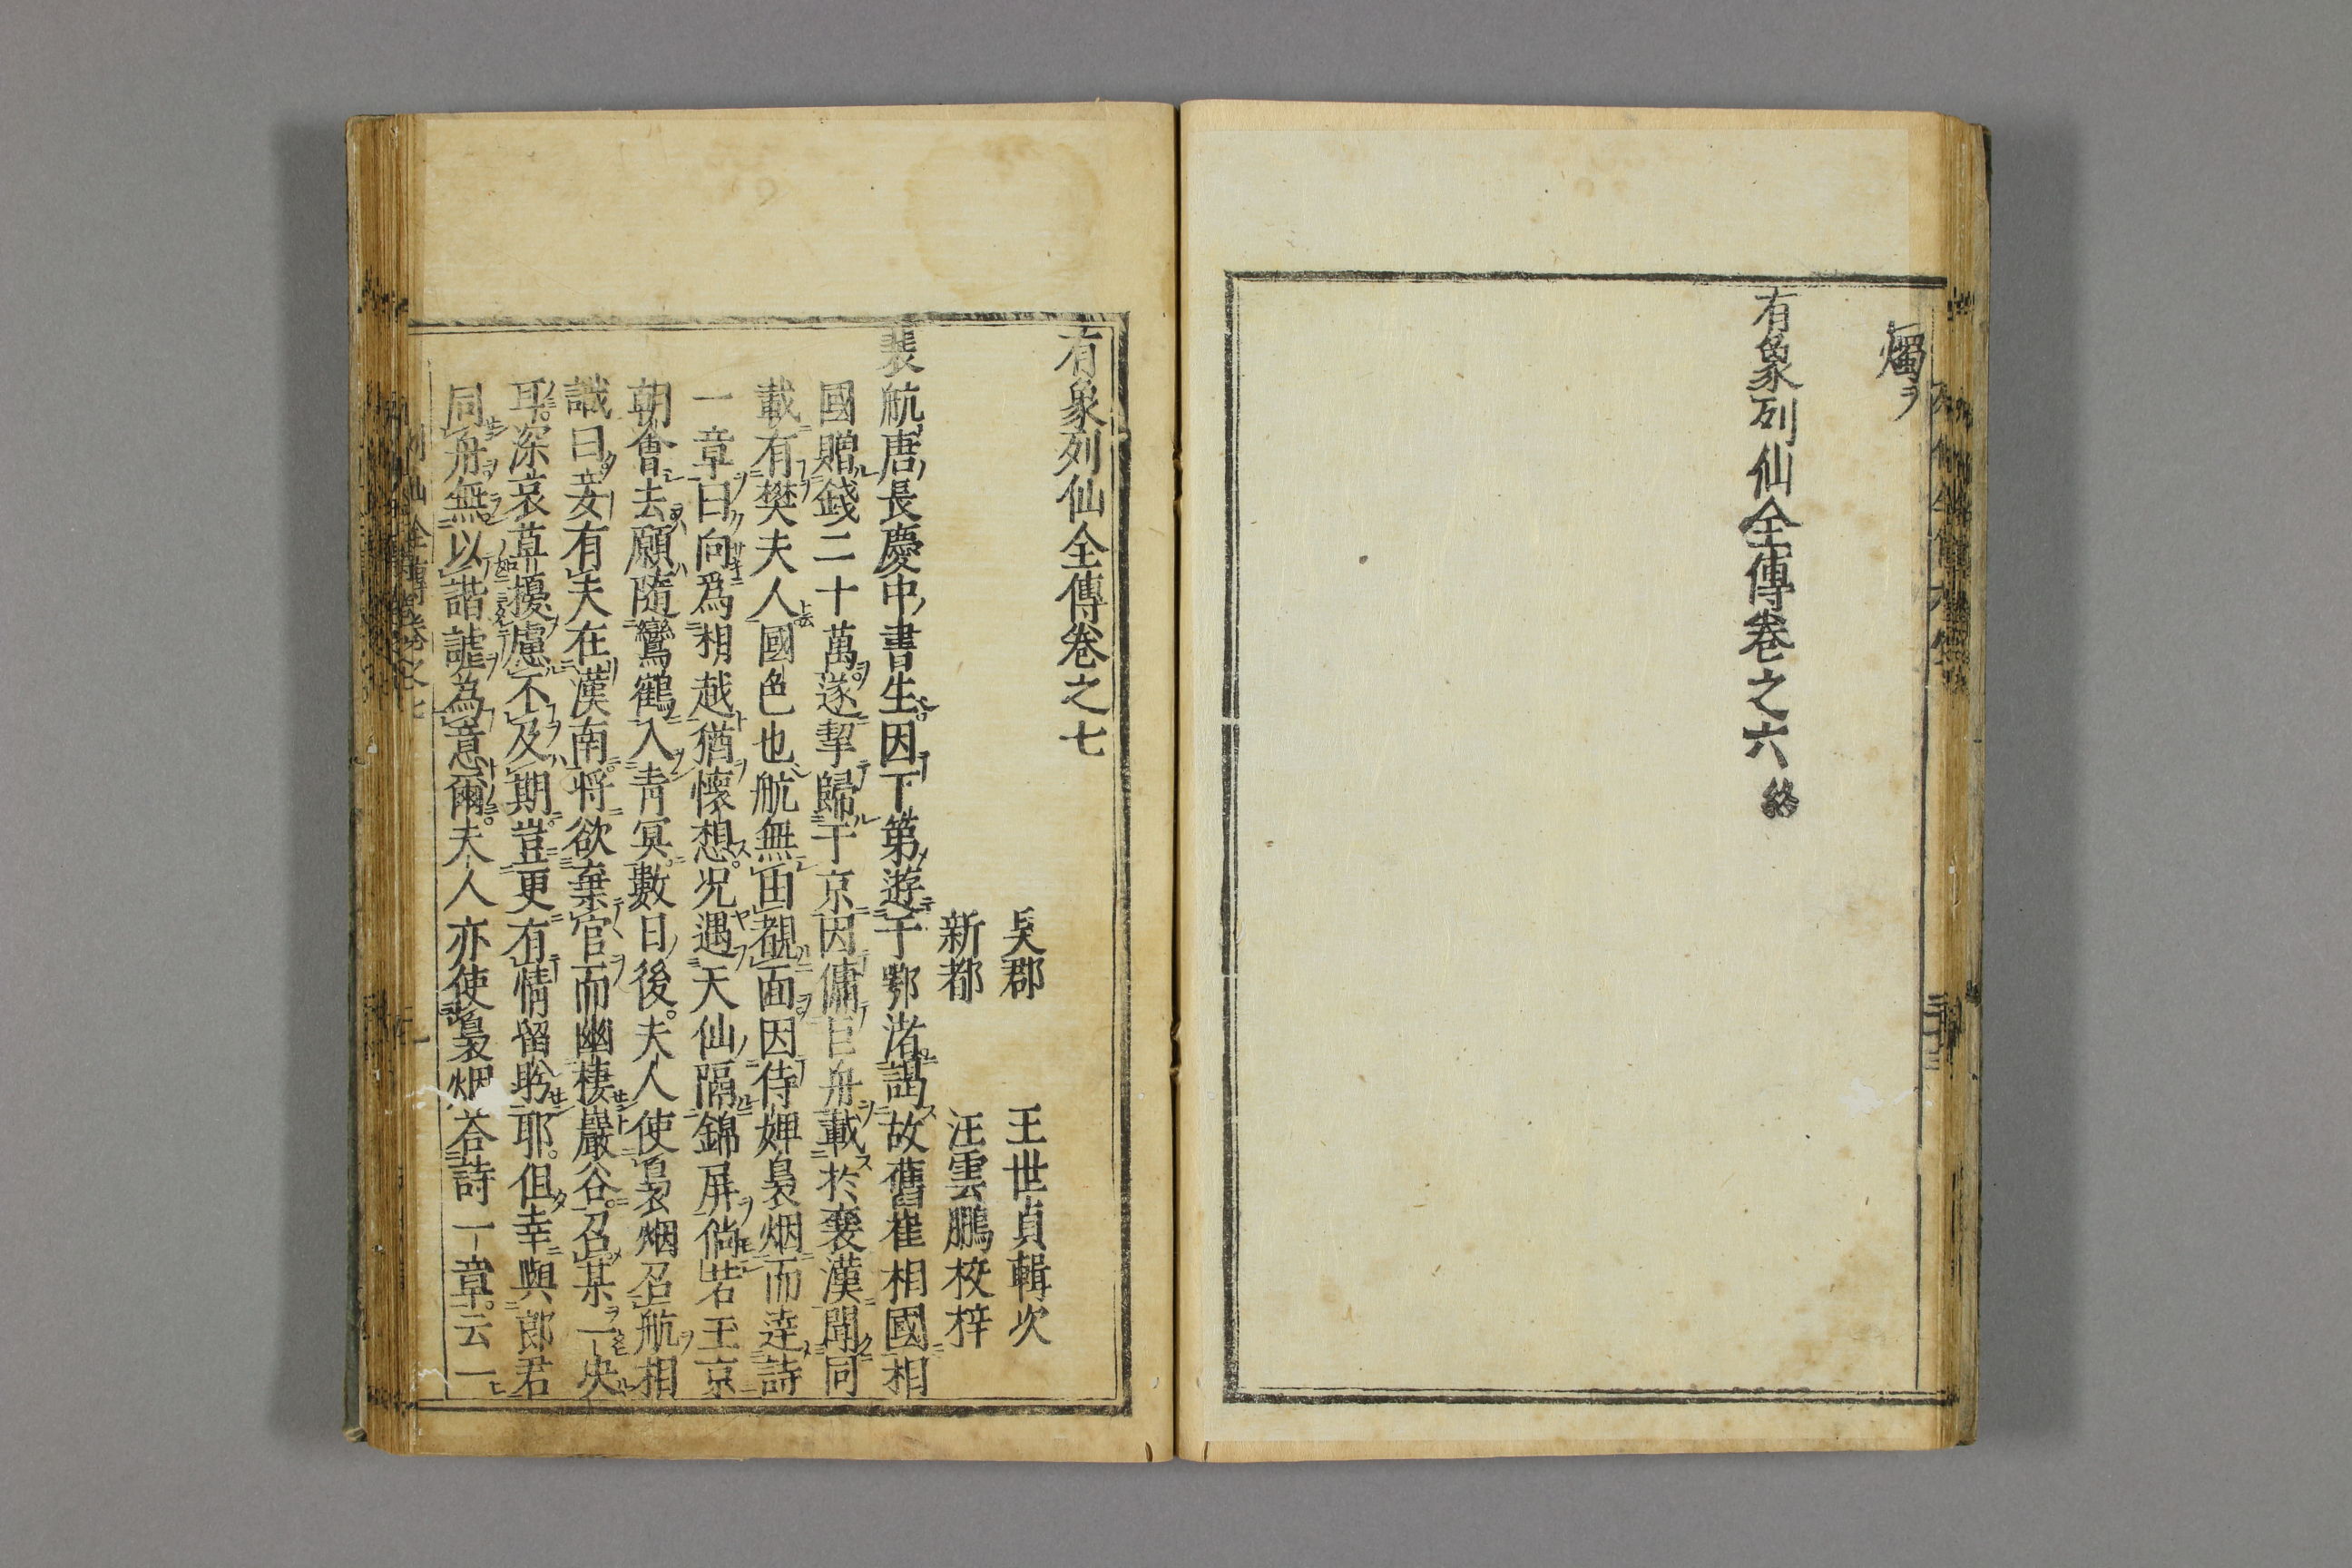 燭ヲ
有象列仙全傳卷之六終
有象列仙全傳卷之七
吳郡 王世貞輯次
新都 汪雲鵬校梓
裴航唐長慶中書生因下第遊于鄂渚謁故舊崔相國相
國贈錢二十萬遂挈歸于京因傭巨舟載於襄漢聞同
載有樊夫人國色也航無由覩面因侍婢裊烟而達詩
一章曰向爲胡越猶懷想况遇天仙隔錦屏倘若玉京
朝會去願隨鸞鶴入青冥數日後夫人使裊烟召航相
識曰妾有夫在漢南將欲棄官而幽棲巖谷召某一决
耳深哀草擾慮不及期豈更有情留盻耶但幸與郎君
同舟無以諧謔為意爾夫人亦使裊烟荅詩一章云一
列仙全傳卷之七